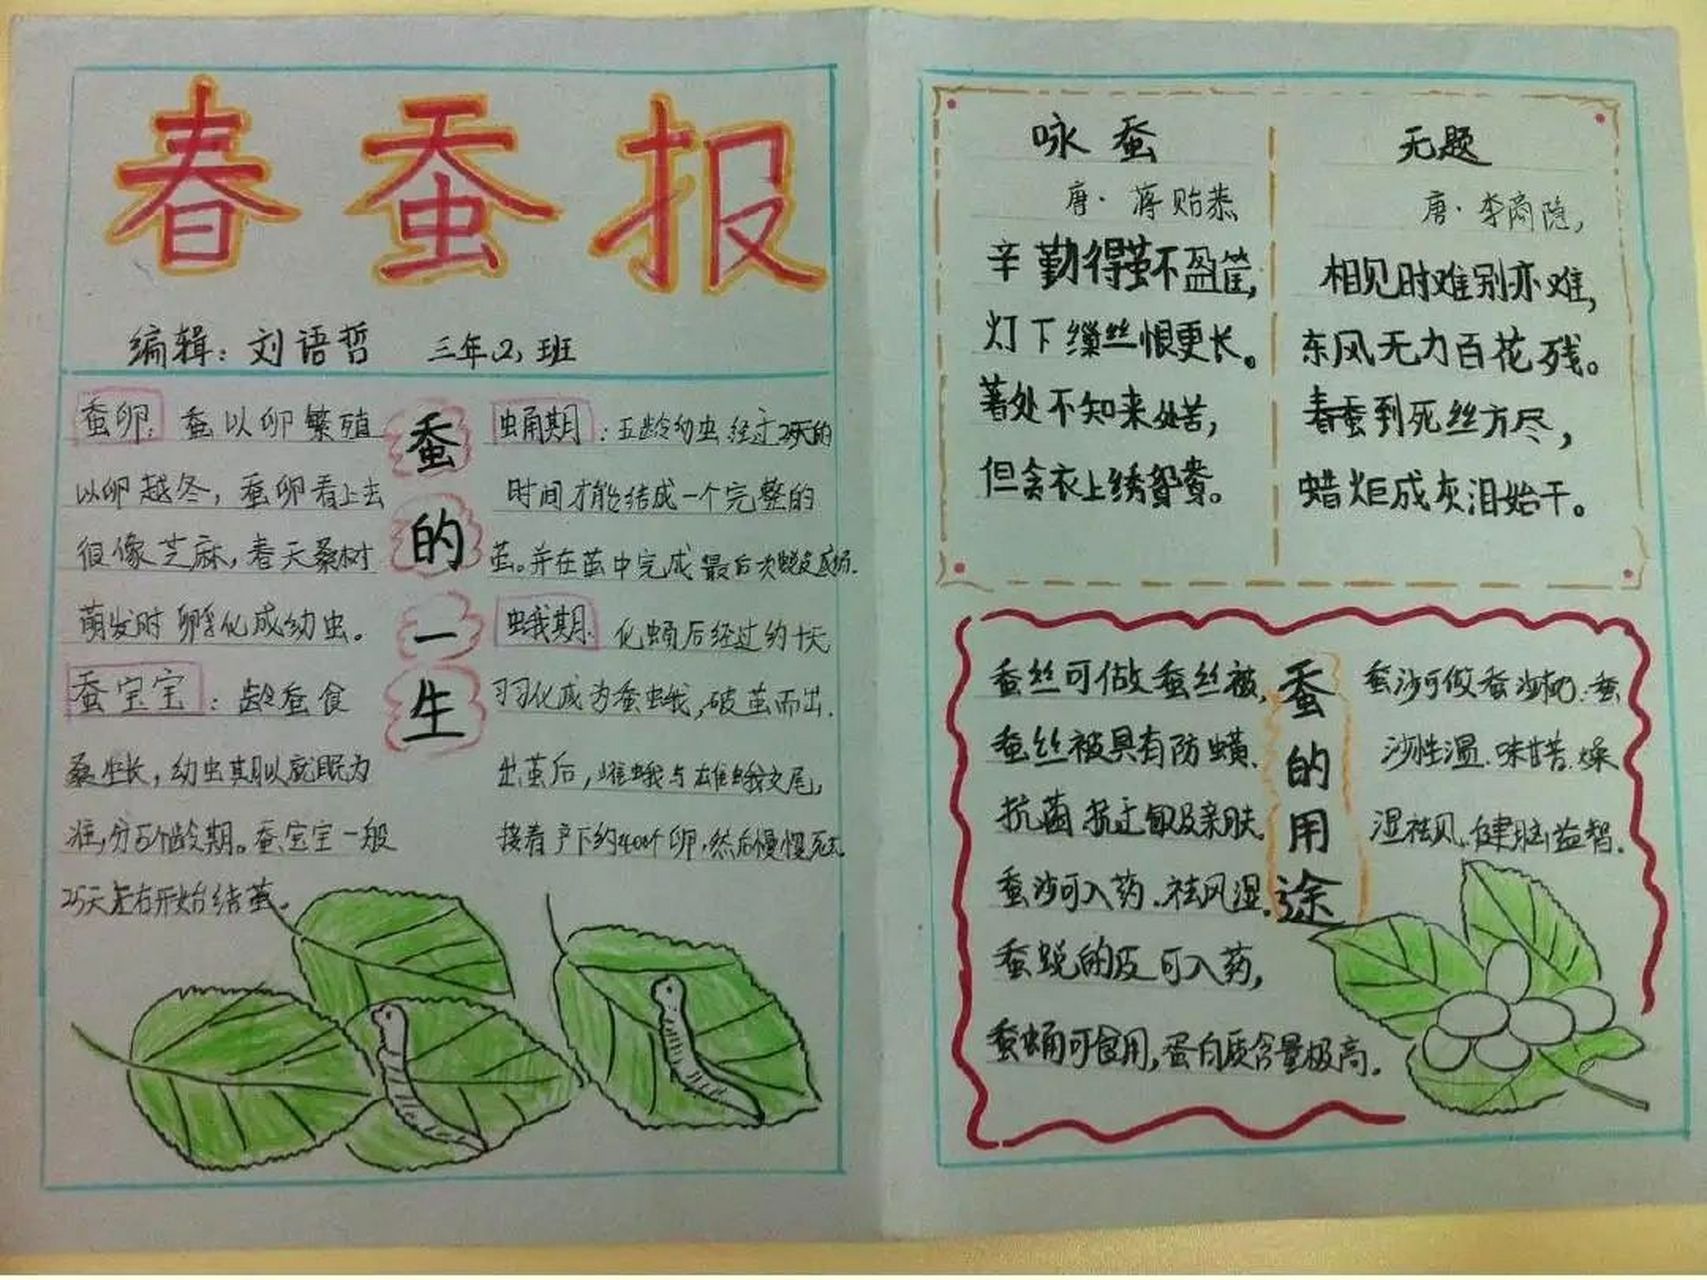 春蚕报
编辑：刘语哲 三年2班
蚕的一生
蚕卵：蚕以卵繁殖
以卵越冬，蚕卵看上去
很像芝麻，春天桑树
萌发时孵化成幼虫。
蚕宝宝：龄蚕食
桑生长，幼虫期以就眠为
准，分5个龄期。蚕宝宝一般
25天左右开始结茧。
蛹期：五龄幼虫经过2天的
时间才能结成一个完整的
茧。并在茧中完成最后次蜕皮成蛹.
蛾期：化蛹后经过约十天
羽化成为蚕蛾，破茧而出.
出茧后，雌蛾与雄蛾交尾，
接着产下约400个卵，然后慢慢死去
咏蚕
唐·蒋贻恭
辛勤得茧不盈筐，
灯下缫丝恨更长。
著处不知来处苦，
但贪衣上绣鸳鸯。
无题
唐·李商隐，
相见时难别亦难，
东风无力百花残。
春蚕到死丝方尽，
蜡炬成灰泪始干。
蚕的用途
蚕丝可做蚕丝被，
蚕丝被具有防螨.
抗菌.抗过敏及亲肤.
蚕沙可入药.祛风湿.
蚕蜕的皮可入药，
蚕蛹可食用，蛋白质含量极高.
蚕沙可做蚕沙枕.蚕
沙性温.味甘苦.燥
湿祛风.健脑益智.